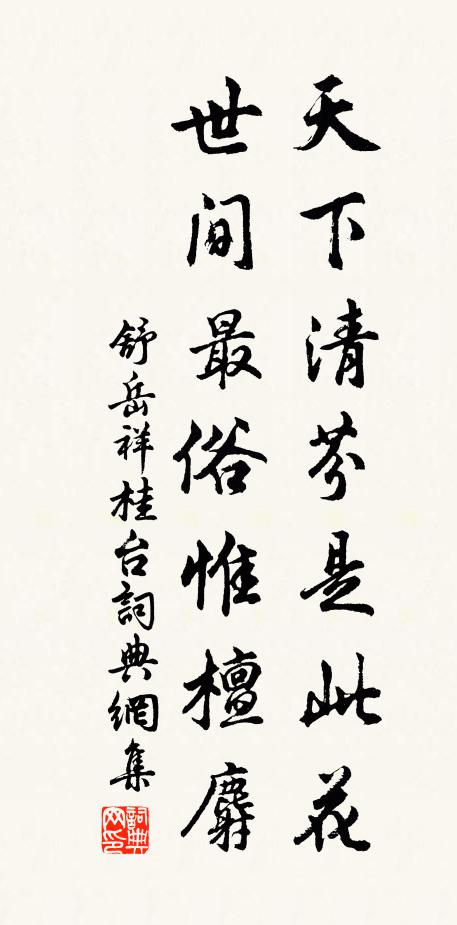 天下清芬是此花
世间最俗惟檀麝
舒岳祥桂台詞典網集
詞典网印